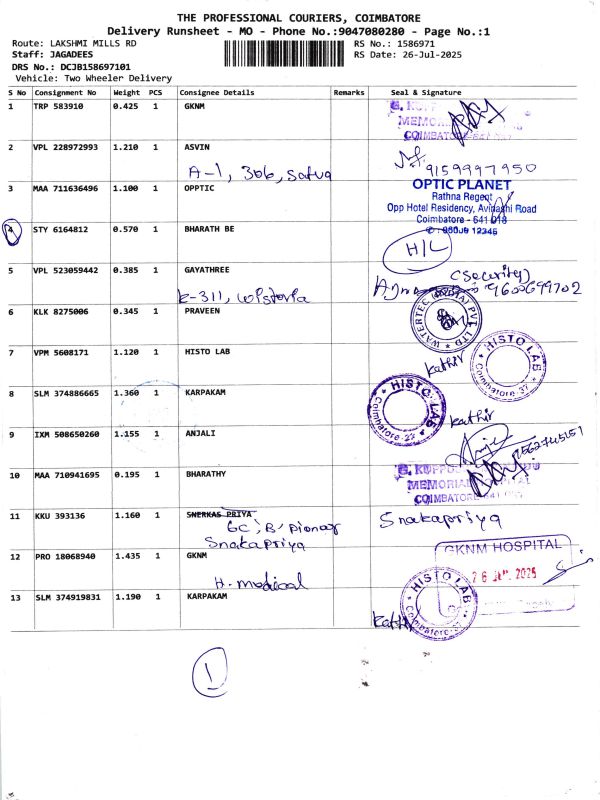 THE PROFESSIONAL COURIERS, COIMBATORE
Delivery Runsheet - MO - Phone No.:9047080280 - Page No.:1
Route: LAKSHMI MILLS RD RS No.: 1586971
Staff: JAGADEES RS Date: 26-Jul-2025
DRS No.: DCJB158697101
Vehicle: Two Wheeler Delivery
S No Consignment No Weight PCS Consignee Details Remarks Seal & Signature
1 TRP 583910 0.425 1 GKNM
MEMORIAL
COIMBATORE
2 VPL 228972993 1.210 1 ASVIN
A-1, 306, Satva 9159997950
3 MAA 711636496 1.100 1 OPPTIC OPTIC PLANET
Rathna Regent
Opp Hotel Residency, Avinashi Road
Coimbatore - 641 018
4 STY 6164812 0.570 1 BHARATH BE
H/L
5 VPL 523059442 0.385 1 GAYATHREE (Security)
K-311, Wistoria 9600699702
6 KLK 8275006 0.345 1 PRAVEEN WATERTEC (INDIA) PVT. LTD
7 VPM 5608171 1.120 1 HISTO LAB kathir HISTO LAB Coimbatore-37
8 SLM 374886665 1.360 1 KARPAKAM HISTO LAB Coimbatore-37
kathir
9 IXM 508650260 1.155 1 ANJALI
10 MAA 710941695 0.195 1 BHARATHY
MEMORIAL HOSPITAL
COIMBATORE
11 KKU 393136 1.160 1 SNERKAS PRIYA Snakapriya
6C, 'B' Pioneer
Snakapriya
12 PRO 18068940 1.435 1 GKNM GKNM HOSPITAL
26 JUL 2025
H. medical
13 SLM 374919831 1.190 1 KARPAKAM kathir HISTO LAB Coimbatore-37
1